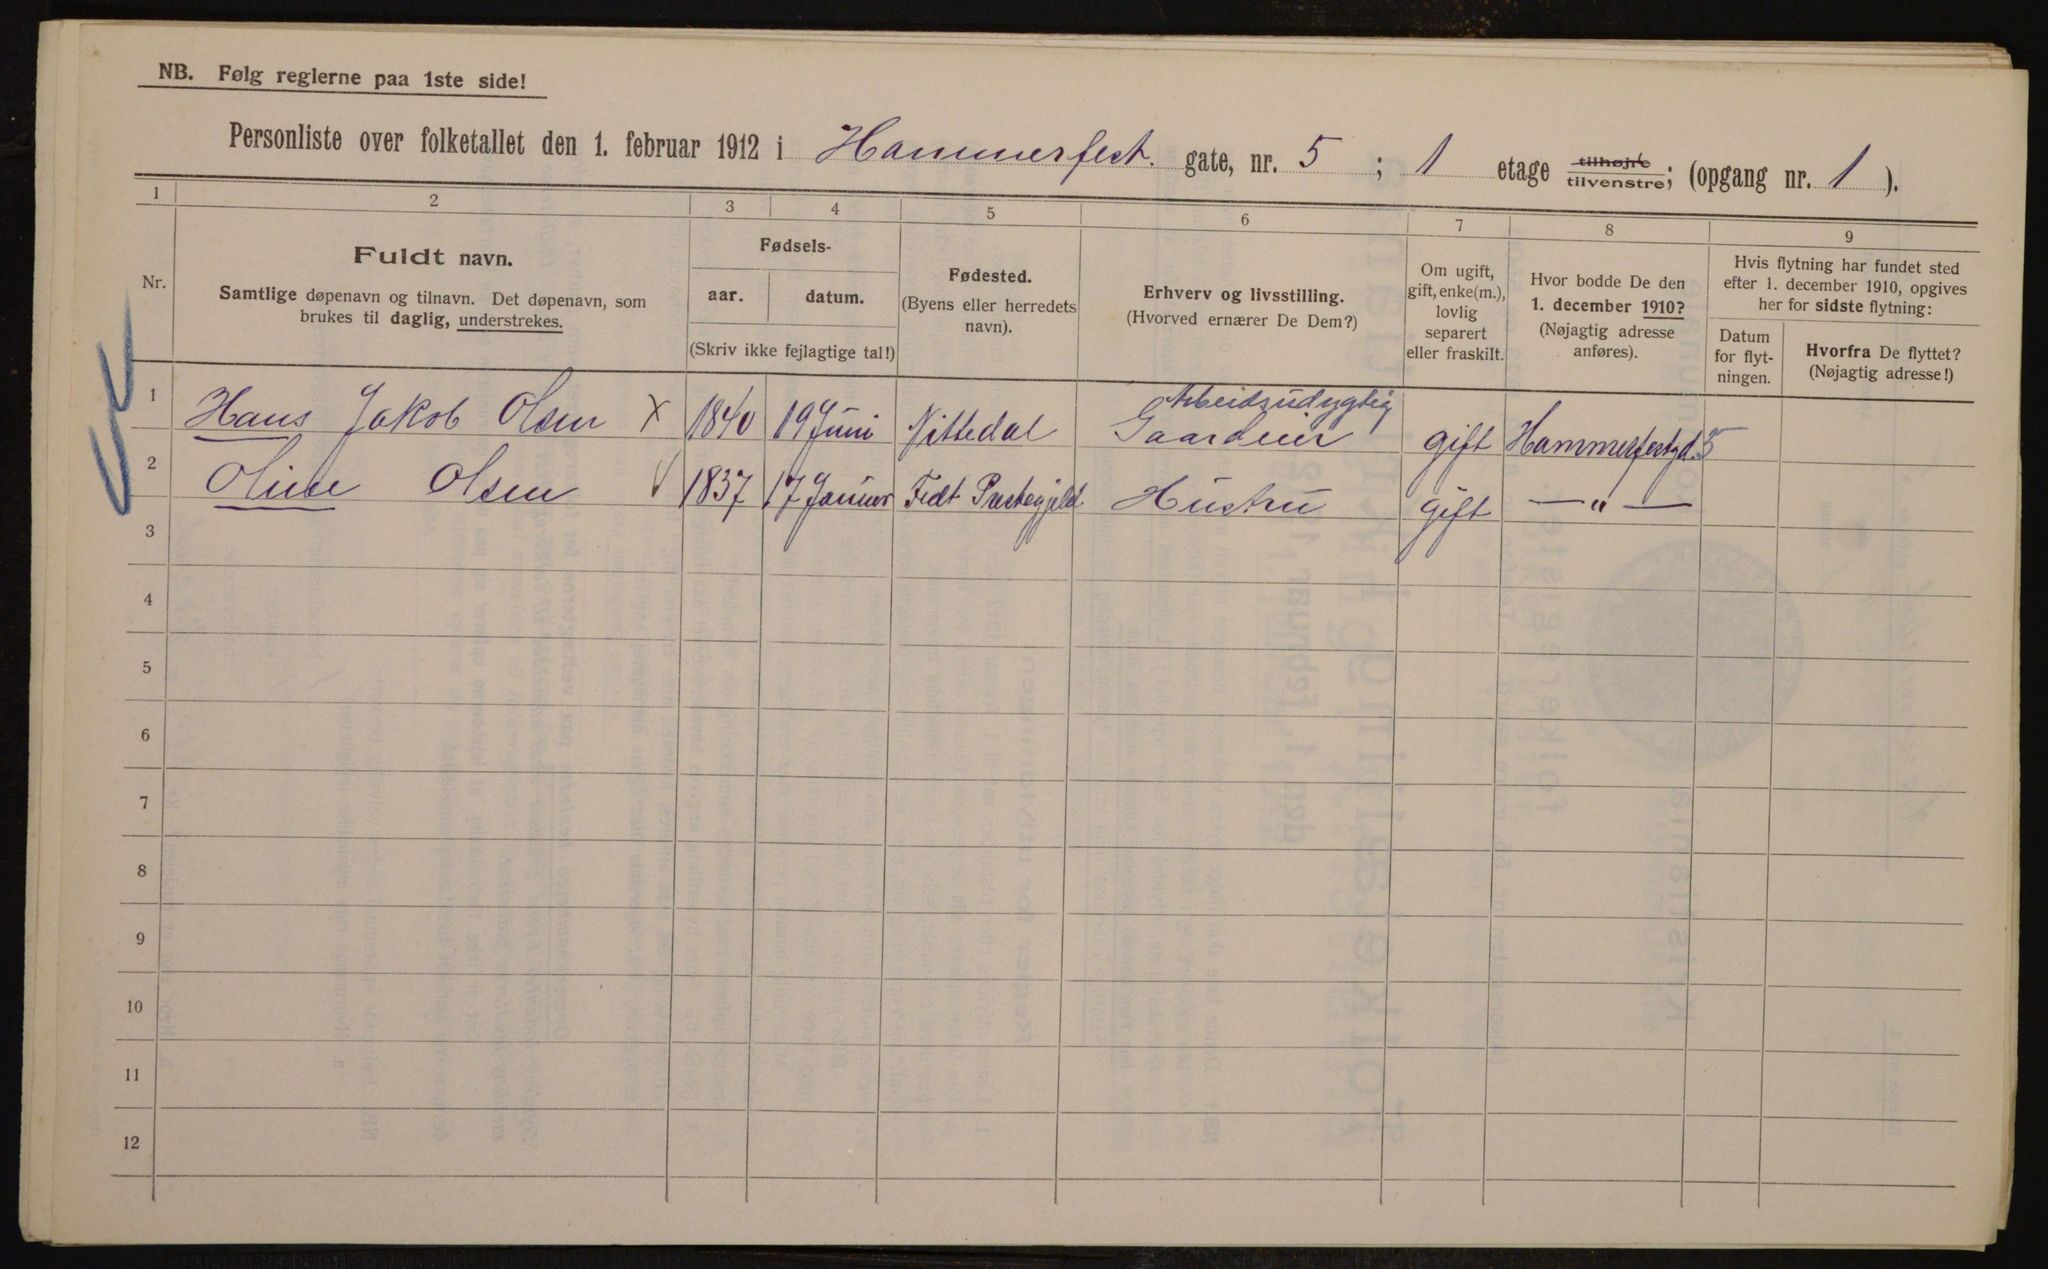 NB. Følg reglerne paa 1ste side!
Personliste over folketallet den 1. februar 1912 i Hammerfest. gate, nr. 5 ; 1 etage tilhøjre tilvenstre; (opgang nr. 1 ).
1 2 3 4 5 6 7 8 9
Nr.
Fuldt navn.
Samtlige døpenavn og tilnavn. Det døpenavn, som
brukes til daglig, understrekes.
Fødsels-
aar. datum.
(Skriv ikke fejlagtige tal!)
Fødested.
(Byens eller herredets
navn).
Erhverv og livsstilling.
(Hvorved ernærer De Dem?)
Om ugift,
gift, enke(m.),
lovlig
separert
eller fraskilt.
Hvor bodde De den
1. december 1910?
(Nøjagtig adresse
anføres).
Hvis flytning har fundet sted
efter 1. december 1910, opgives
her for sidste flytning:
Datum
for flyt-
ningen.
Hvorfra De flyttet?
(Nøjagtig adresse!)
Arbeidsudygtig
1 Hans Jakob Olsen x 1840 19 Juni Nittedal Gaardeier gift Hammerfestgd. 5
2 Oline Olsen 1837 17 Januar Fedt Prestegjeld Hustru gift — " —
3
4
5
6
7
8
9
10
11
12